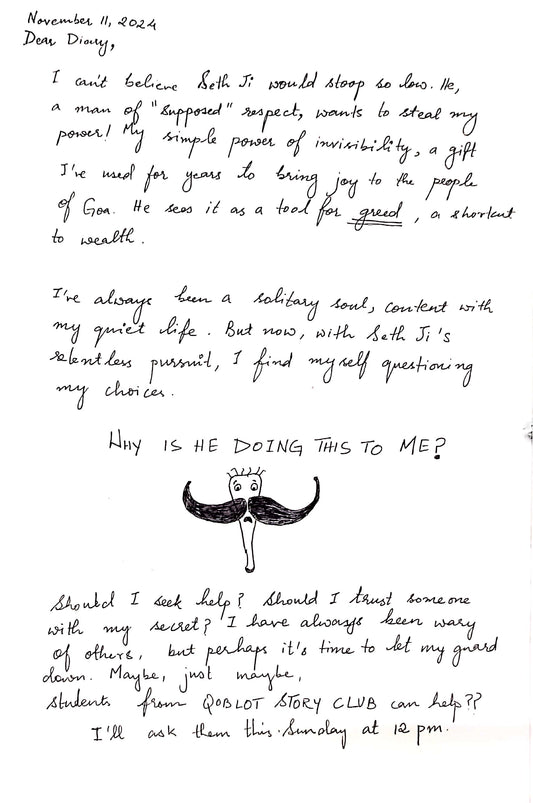 November 11, 2024
Dear Diary,
I can't believe Seth Ji would stoop so low. He,
a man of "supposed" respect, wants to steal my
power! My simple power of invisibility, a gift
I've used for years to bring joy to the people
of Goa. He sees it as a tool for greed, a shortcut
to wealth.
I've always been a solitary soul, content with
my quiet life. But now, with Seth Ji's
relentless pursuit, I find myself questioning
my choices.
WHY IS HE DOING THIS TO ME?
Should I seek help? Should I trust someone
with my secret? I have always been wary
of others, but perhaps it's time to let my guard
down. Maybe, just maybe,
students from QOBLOT STORY CLUB can help??
I'll ask them this Sunday at 12 pm.